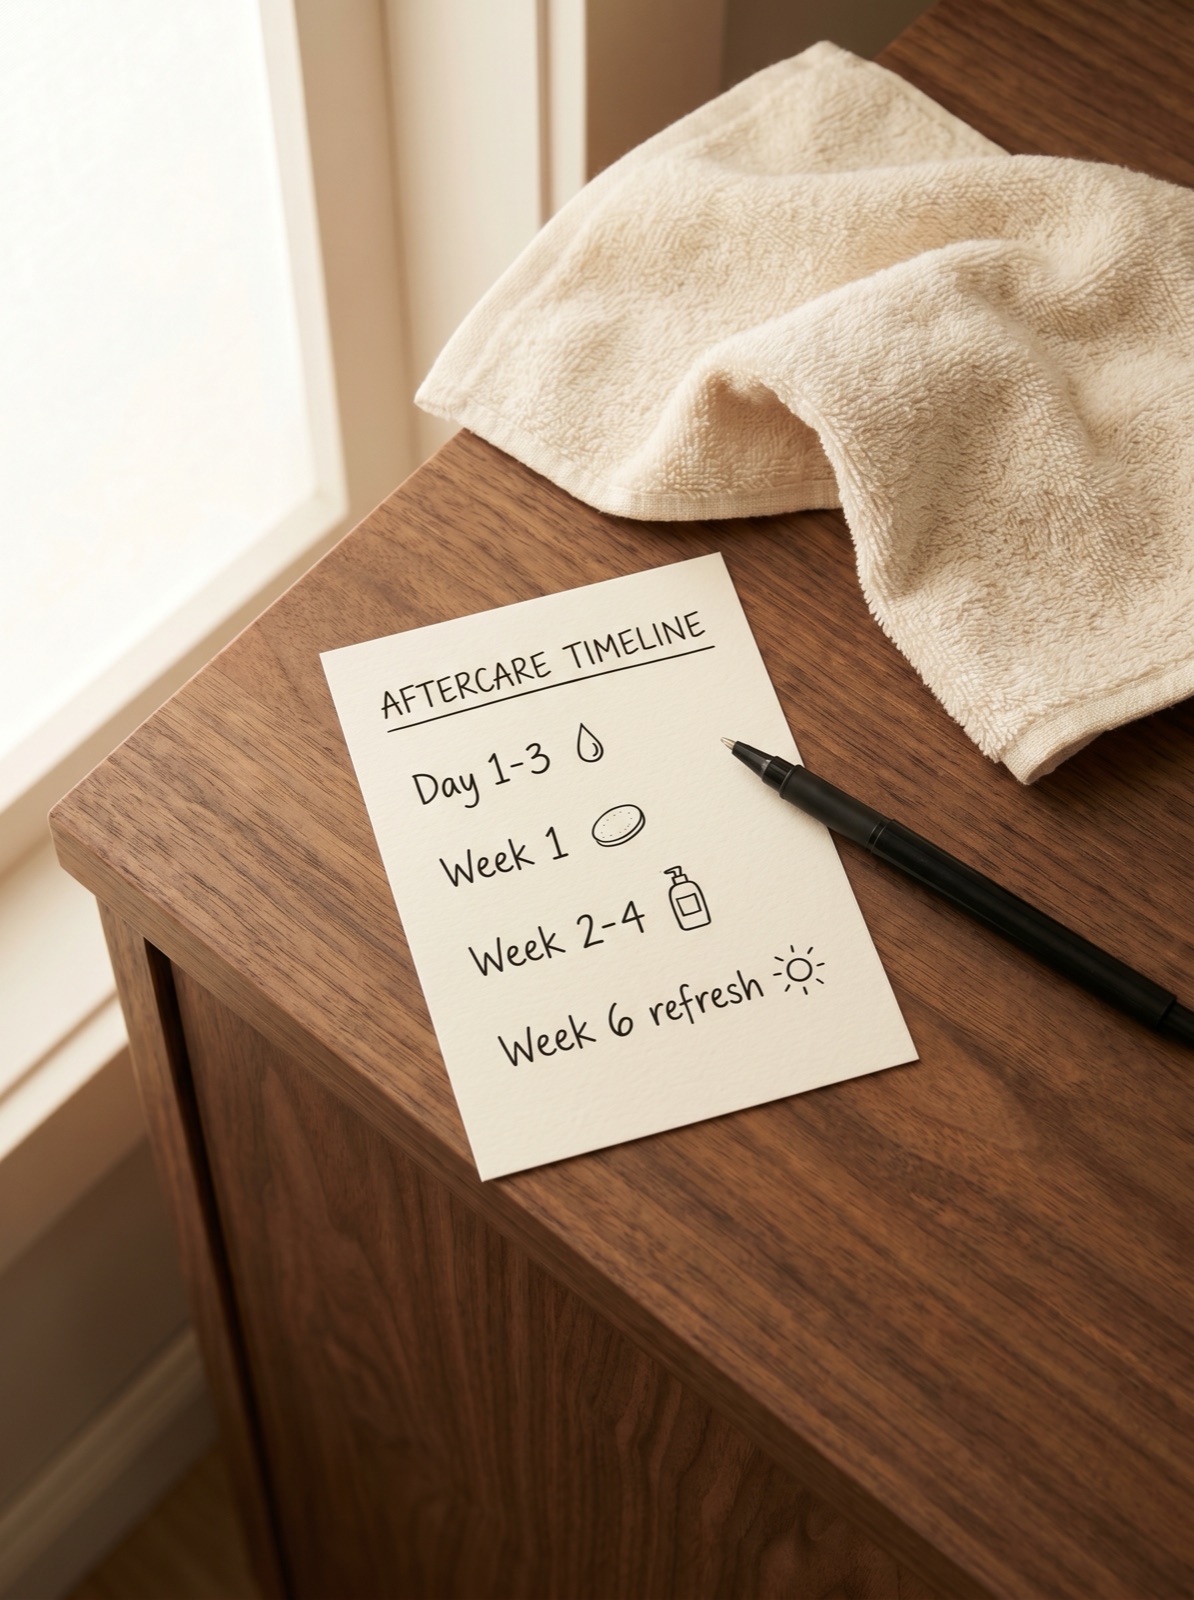 AFTERCARE TIMELINE
Day 1-3
Week 1
Week 2-4
Week 6 refresh